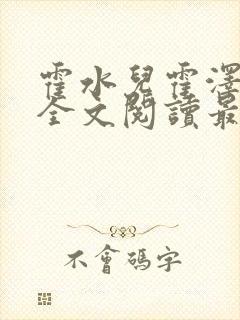 霍水兒霍澤
全文閱讀最
不會碼字